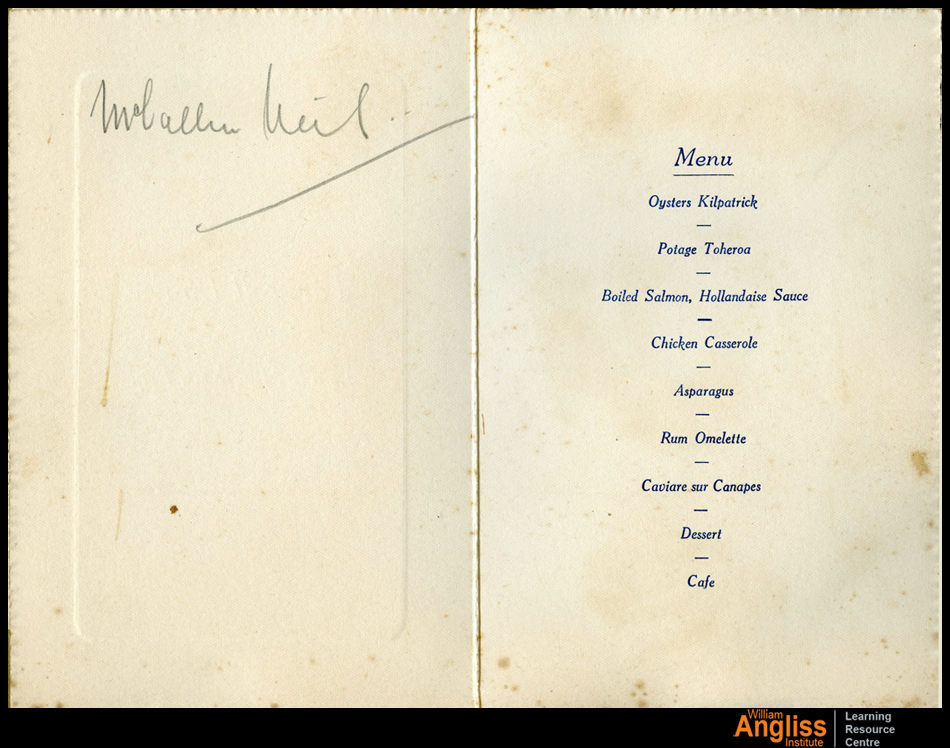 Menu
Oysters Kilpatrick
—
Potage Toheroa
—
Boiled Salmon, Hollandaise Sauce
—
Chicken Casserole
—
Asparagus
—
Rum Omelette
—
Caviare sur Canapes
—
Dessert
—
Cafe
William
Angliss
Institute
Learning
Resource
Centre